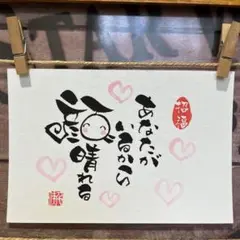 あなたが
いるから
顔晴れる
招福